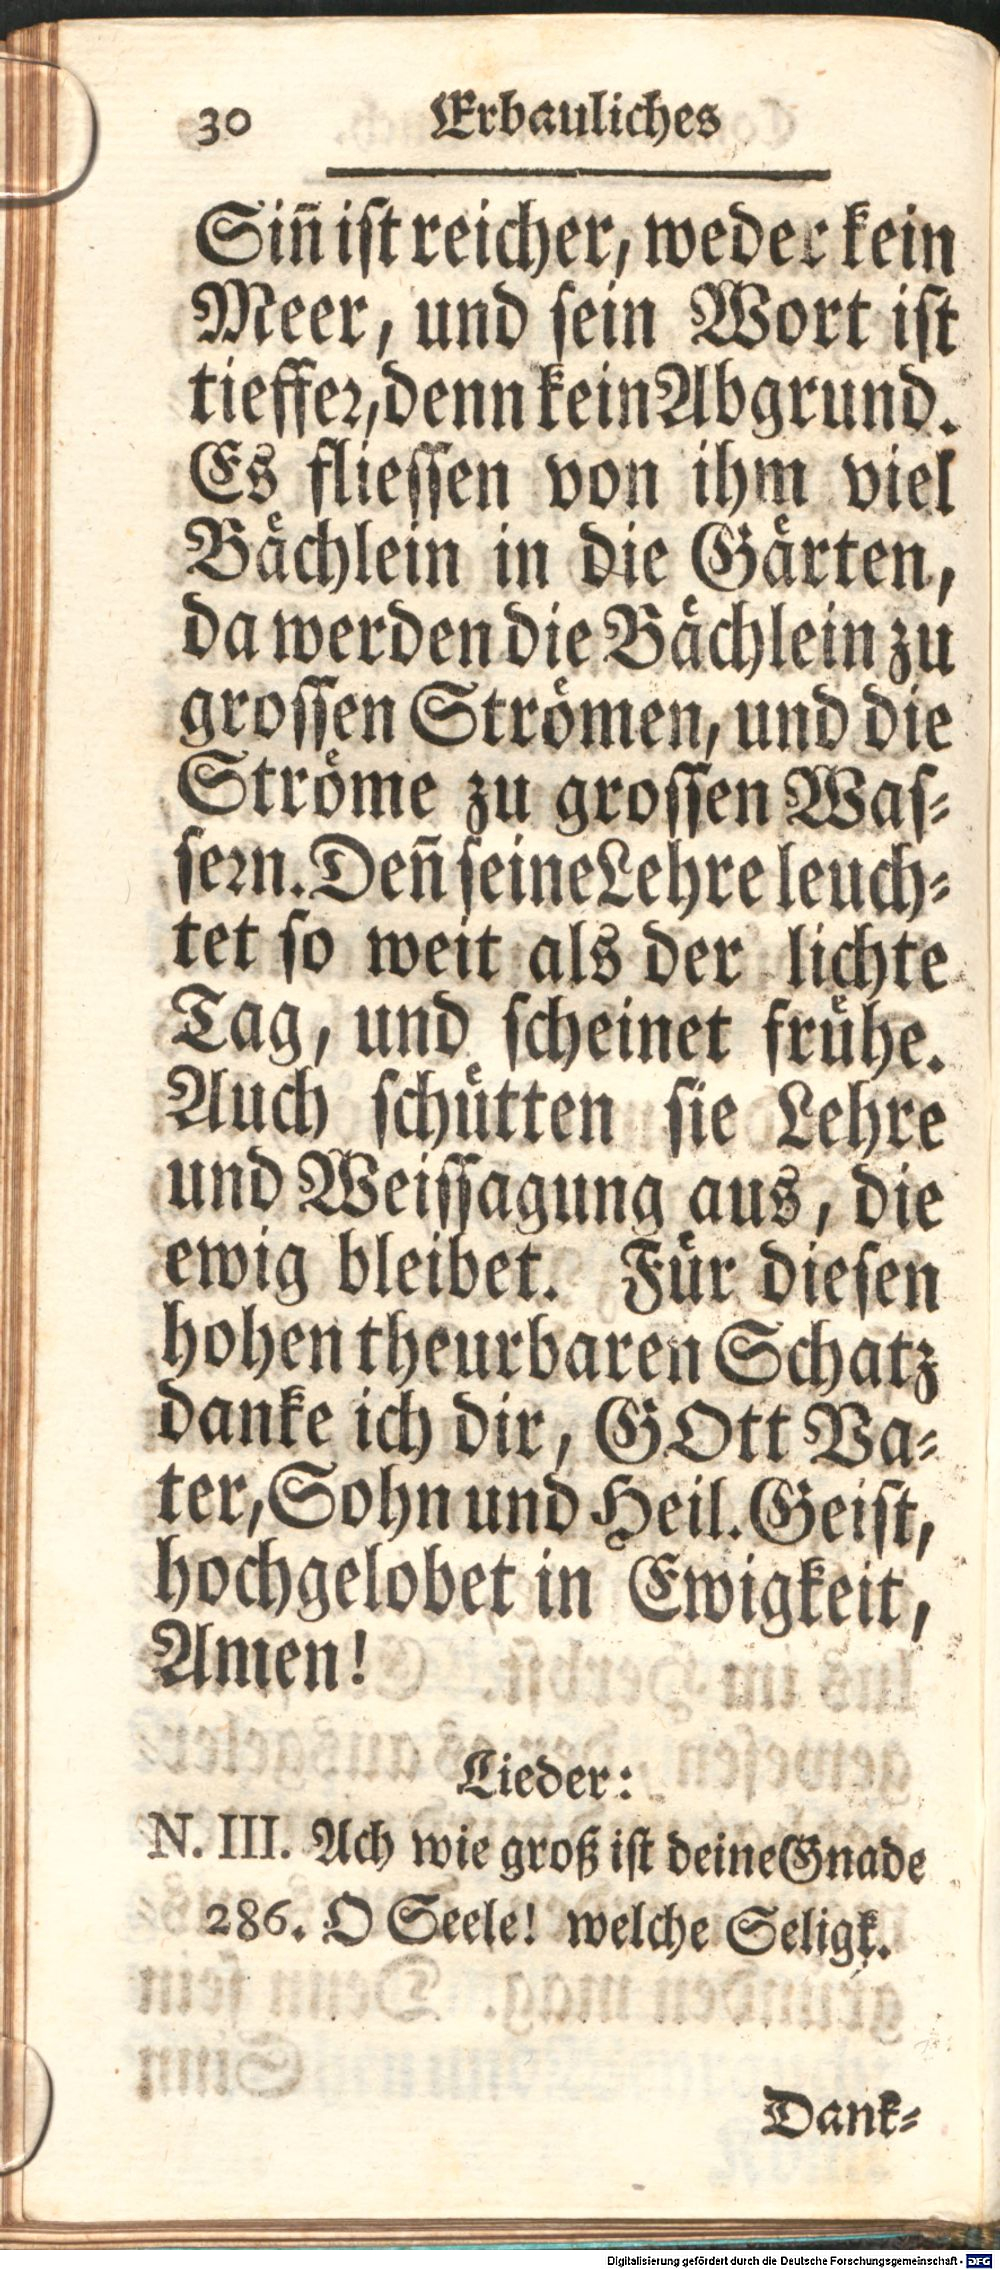 30 Erbauliches
Siñ ist reicher, weder kein
Meer, und sein Wort ist
tieffer, denn kein Abgrund.
Es fliessen von ihm viel
Bächlein in die Gärten,
da werden die Bächlein zu
grossen Strömen, und die
Ströme zu grossen Was-
sern. Deñ seine Lehre leuch-
tet so weit als der lichte
Tag, und scheinet frühe.
Auch schütten sie Lehre
und Weissagung aus, die
ewig bleibet. Für diesen
hohen theurbaren Schatz
danke ich dir, GOtt Va-
ter, Sohn und Heil. Geist,
hochgelobet in Ewigkeit,
Amen!
Lieder:
N. III. Ach wie groß ist deine Gnade
286. O Seele! welche Seligk.
Dank-
Digitalisierung gefördert durch die Deutsche Forschungsgemeinschaft - DFG